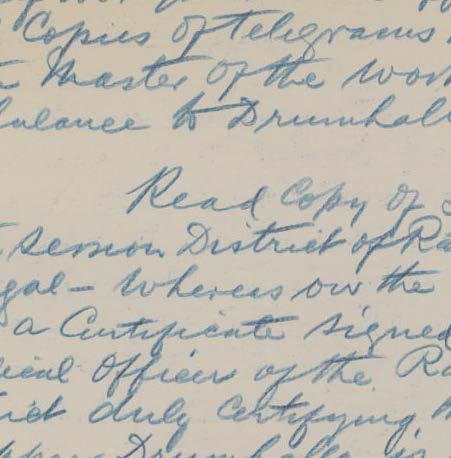 Copies of telegrams
Master of the Work
bulance to Drumhall
Read Copy of
Session District of Ra
gal - Whereas on the
a Certificate signed
dical Officer of the Ra
trict duly Certifying
Drumhalla is